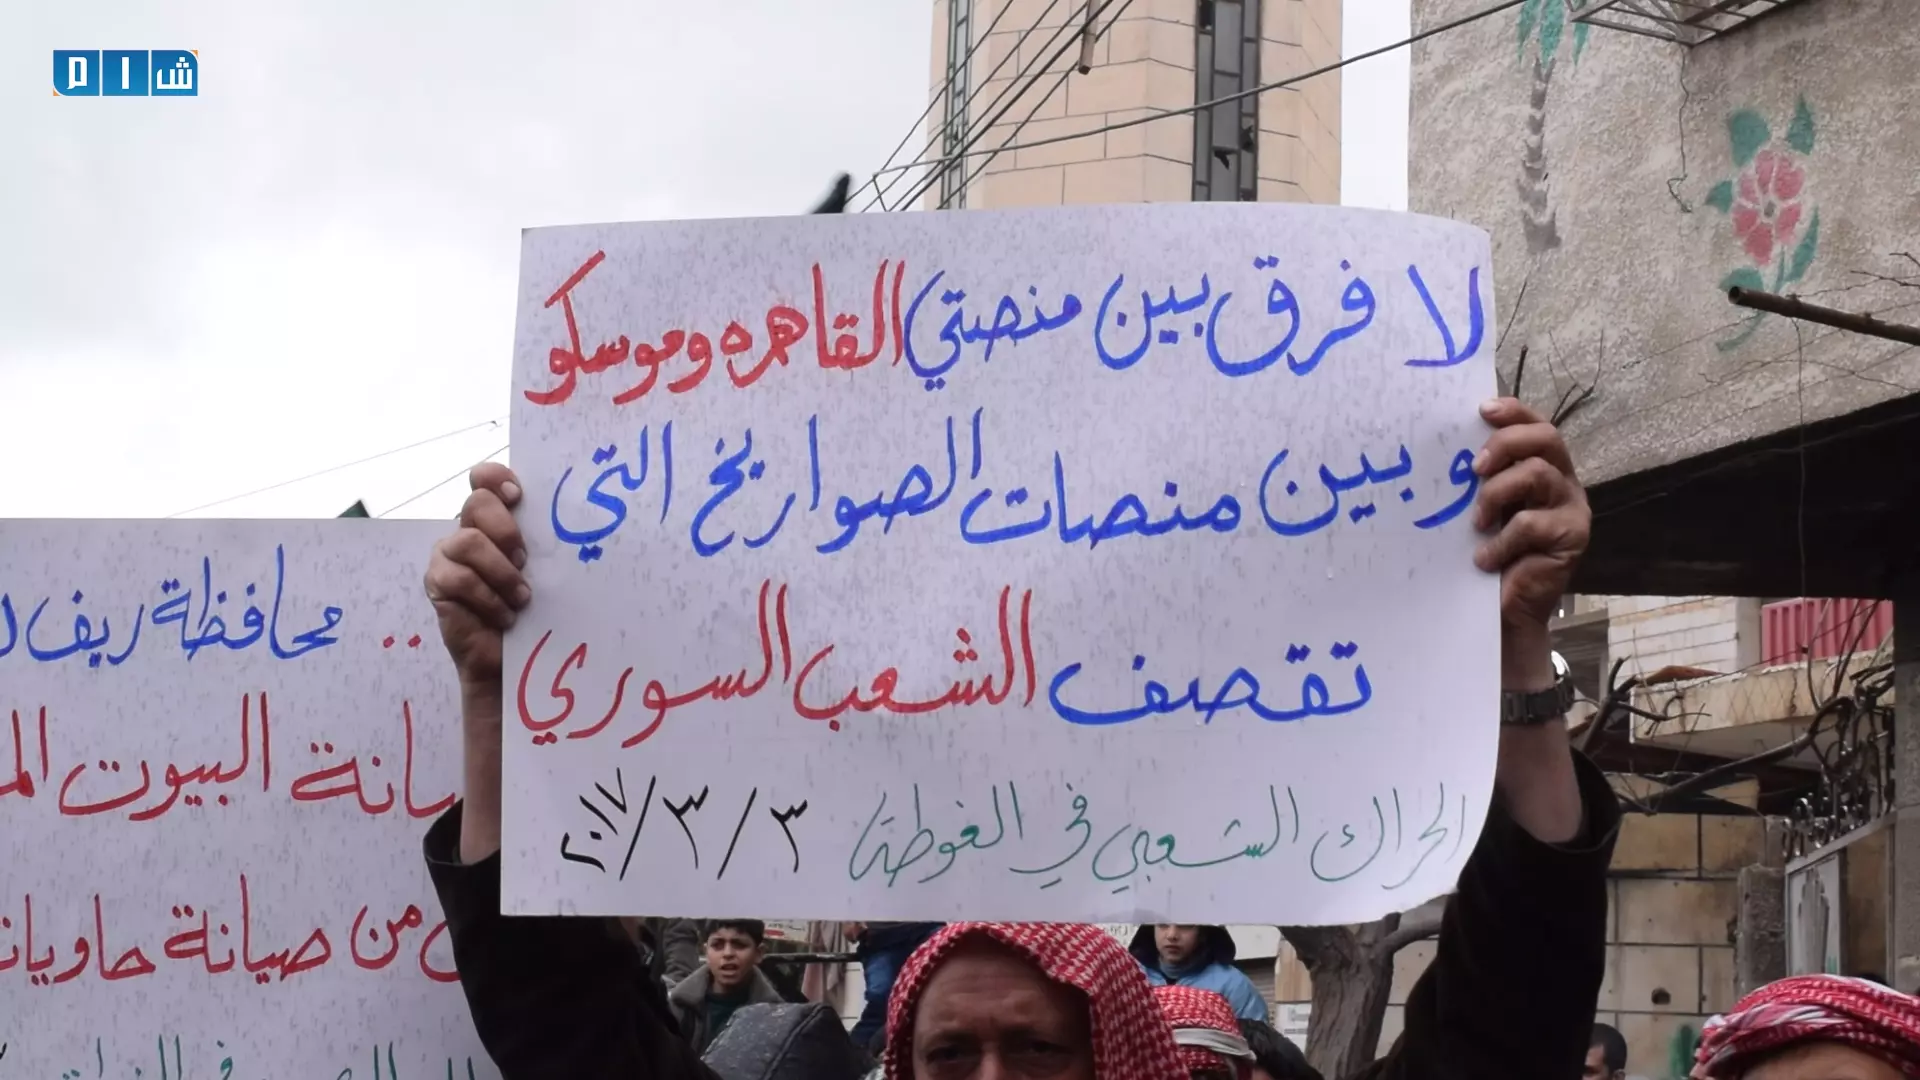 شام
لا فرق بين منصتي القاهره وموسكو
وبين منصات الصواريخ التي
تقصف الشعب السوري
الحراك الشعبي في الغوطة ٣/٣/٢٠١٧
.. محافظة ريف
البيوت
من صيانة